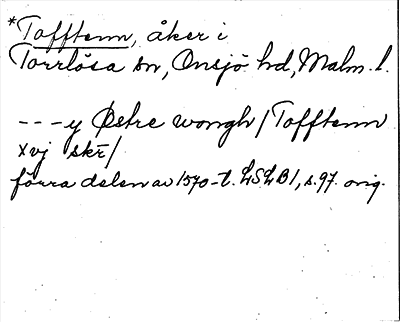 *Tofftenn, åker i
Torrlösa sn, Onsjö hd, Malm. l.
---y Østre wongh / Tofftenn
xvj skr̄ /
förra delen av 1570-t. LSLB 1, s. 97. orig.